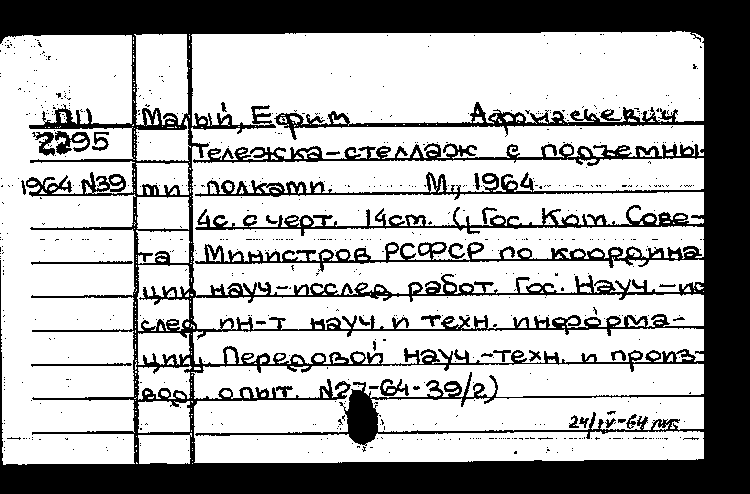 ПП Малый, Ефрим Афанасьевич
2295 Тележка-стеллаж с подъемны-
1964 N39 ми полками. М., 1964.
4с. с черт. 14см. (Гос. Ком. Сове-
та Министров РСФСР по координа
ции науч.-исслед. работ. Гос. Науч.-ис
след. ин-т науч. и техн. информа-
ции. Передовой науч.-техн. и произ-
вод. опыт. N27-64-39/2)
24/IV-64